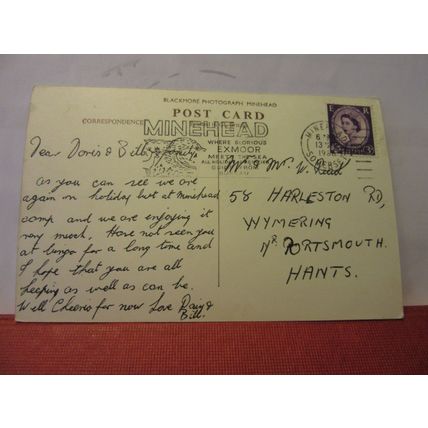 BLACKMORE PHOTOGRAPH MINEHEAD
POST CARD
CORRESPONDENCE
MINEHEAD
WHERE GLORIOUS
EXMOOR
MEETS THE SEA
E R
MINEHEAD
SOMERSET
Dear Doris & Billy &
as you can see we are
again on holiday but at Minehead
camp and we are enjoying it
very much. Have not seen you
at bingo for a long time and
I hope that you are all
keeping as well as can be.
Well Cheerio for now Love Daisy &
Bill.
Mr & Mrs W.
58 HARLESTON RD,
WYMERING
NR PORTSMOUTH.
HANTS.